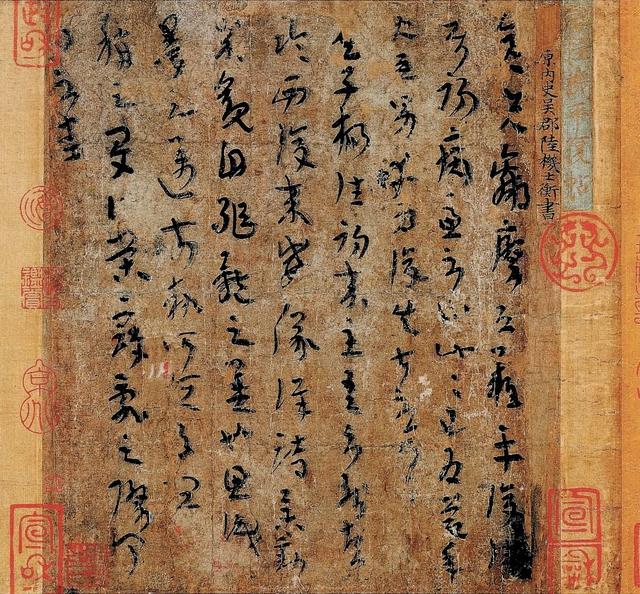 原內史吳郡陸機士衡書
彥先羸瘵恐難平復往屬
初病慮不止此此已為慶承
使唯男幸為復失前憂耳
吳子楊往初來主吾不能盡
臨西復來威儀詳跱舉動
成觀自軀體之美也思識
量之邁前執所恒有宜
稱之夏伯榮寇亂之際聞
問不悉
宣和
宣和